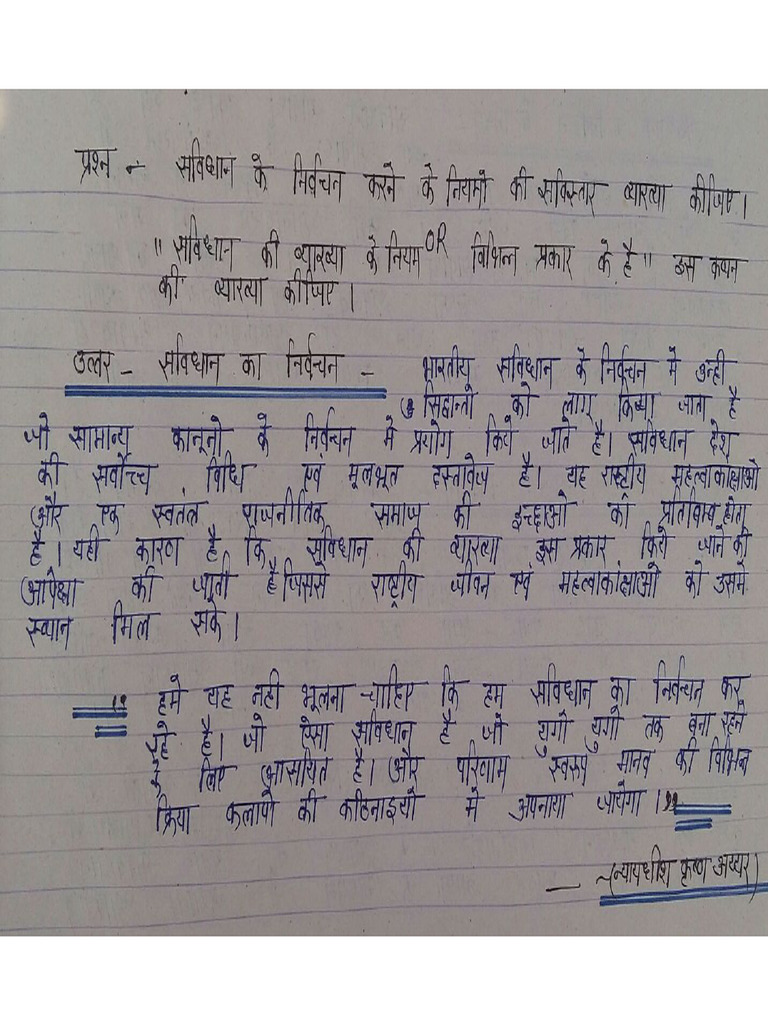 प्रश्न :- सविधान के निर्वचन करने के नियमो की सविस्तार व्याख्या कीजिए।
OR
" सविधान की व्याख्या के नियम विभिन्न प्रकार के है " इस कथन
की व्याख्या कीजिए।
उत्तर - सविधान का निर्वचन - भारतीय सविधान के निर्वचन मे उन्ही
सिद्वान्तो को लागू किया जाता है
जो सामान्य कानूनो के निर्वचन मे प्रयोग किये जाते है। सविधान देश
की सर्वोच्च विधि एवं मूलभूत दस्तावेज है। यह राष्ट्रीय महत्वाकांक्षाओ
और एक स्वतंत्र राजनीतिक समाज की इच्छाओ का प्रतिबिम्ब होता
है। यही कारण है कि सविधान की व्याख्या इस प्रकार किये जाने की
अपेक्षा की जाती है जिससे राष्ट्रीय जीवन एवं महत्वाकांक्षाओ को उसमे
स्थान मिल सके।
" हमे यह नही भूलना चाहिए कि हम सविधान का निर्वचन कर
रहे है। जो ऐसा सविधान है जो युगो युगो तक बना रहने
के लिए आसयित है। और परिणाम स्वरूप मानव की विभिन्न
क्रिया कलापो की कठिनाइयो मे अपनाया जायेगा। "
— ~(न्यायधीश कृष्ण अय्यर)